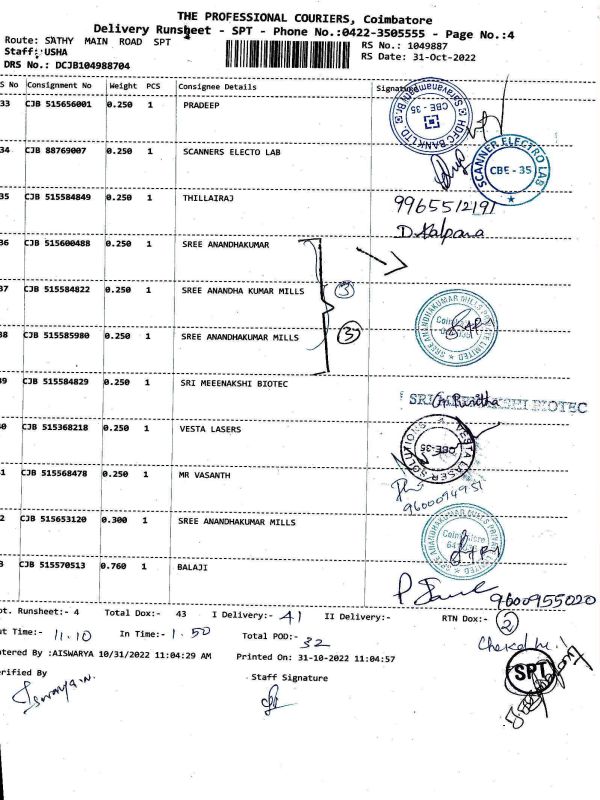 THE PROFESSIONAL COURIERS, Coimbatore
Delivery Runsheet - SPT - Phone No.:0422-3505555 - Page No.:4
Route: SATHY MAIN ROAD SPT
RS No.: 1049887
Staff: USHA
RS Date: 31-Oct-2022
DRS No.: DCJB104988704
S No Consignment No Weight PCS Consignee Details Signature
33 CJB 515656001 0.250 1 PRADEEP
HDFC BANK LTD CBE - 35
34 CJB 88769007 0.250 1 SCANNERS ELECTO LAB
SCANNER ELECTRO LAB CBE - 35
35 CJB 515584849 0.250 1 THILLAIRAJ
9965512191
D. Kalpana
36 CJB 515600488 0.250 1 SREE ANANDHAKUMAR
37 CJB 515584822 0.250 1 SREE ANANDHA KUMAR MILLS
3
38 CJB 515585980 0.250 1 SREE ANANDHAKUMAR MILLS
3
SREE ANANDHAKUMAR MILLS PRIVATE LIMITED
39 CJB 515584829 0.250 1 SRI MEEENAKSHI BIOTEC
SRI MEENAKSHI BIOTEC
40 CJB 515368218 0.250 1 VESTA LASERS
VESTA LASER SOLUTIONS CBE-35
41 CJB 515568478 0.250 1 MR VASANTH
9600094951
2 CJB 515653120 0.300 1 SREE ANANDHAKUMAR MILLS
SREE ANANDHAKUMAR MILLS PRIVATE LIMITED Coimbatore
3 CJB 515570513 0.760 1 BALAJI
9600955020
ot. Runsheet:- 4 Total Dox:- 43 I Delivery:- 41 II Delivery:- RTN Dox:- 2
ut Time:- 11.10 In Time:- 1.50 Total POD:- 32
ntered By :AISWARYA 10/31/2022 11:04:29 AM Printed On: 31-10-2022 11:04:57
erified By
Staff Signature
Aiswarya.N
SPT